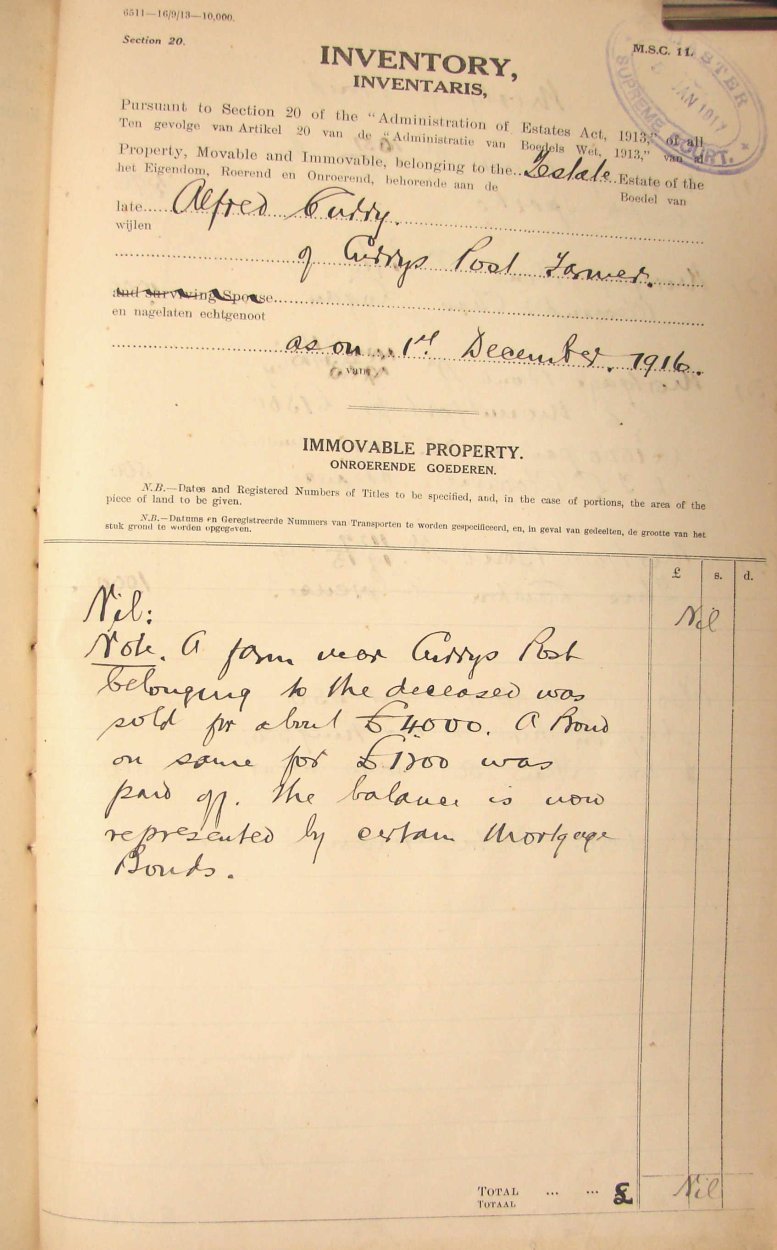 6511—16/9/13—10,000.
Section 20.
M.S.C. 11.
MASTER
JAN 1917
SUPREME COURT.
INVENTORY,
INVENTARIS,
Pursuant to Section 20 of the "Administration of Estates Act, 1913," of all
Ten gevolge van Artikel 20 van de "Administratie van Boedels Wet, 1913," van al
Property, Movable and Immovable, belonging to the Testate Estate of the
het Eigendom, Roerend en Onroerend, behorende aan de Boedel van
late Alfred Cuddy.
wijlen
of Currys Post Farmer.
and surviving Spouse
en nagelaten echtgenoot
as on 1st December. 1916.
van
IMMOVABLE PROPERTY.
ONROERENDE GOEDEREN.
N.B.—Dates and Registered Numbers of Titles to be specified, and, in the case of portions, the area of the
piece of land to be given.
N.B.—Datums en Geregistreerde Nummers van Transporten te worden gespecificeerd, en, in geval van gedeelten, de grootte van het
stuk grond te worden opgegeven.
£ s. d.
Nil: Nil
Note. A farm near Currys Post
belonging to the deceased was
sold for about £4000. A Bond
on same for £1200 was
paid off. The balance is now
represented by certain Mortgage
Bonds.
TOTAL ... ... £ Nil
TOTAAL